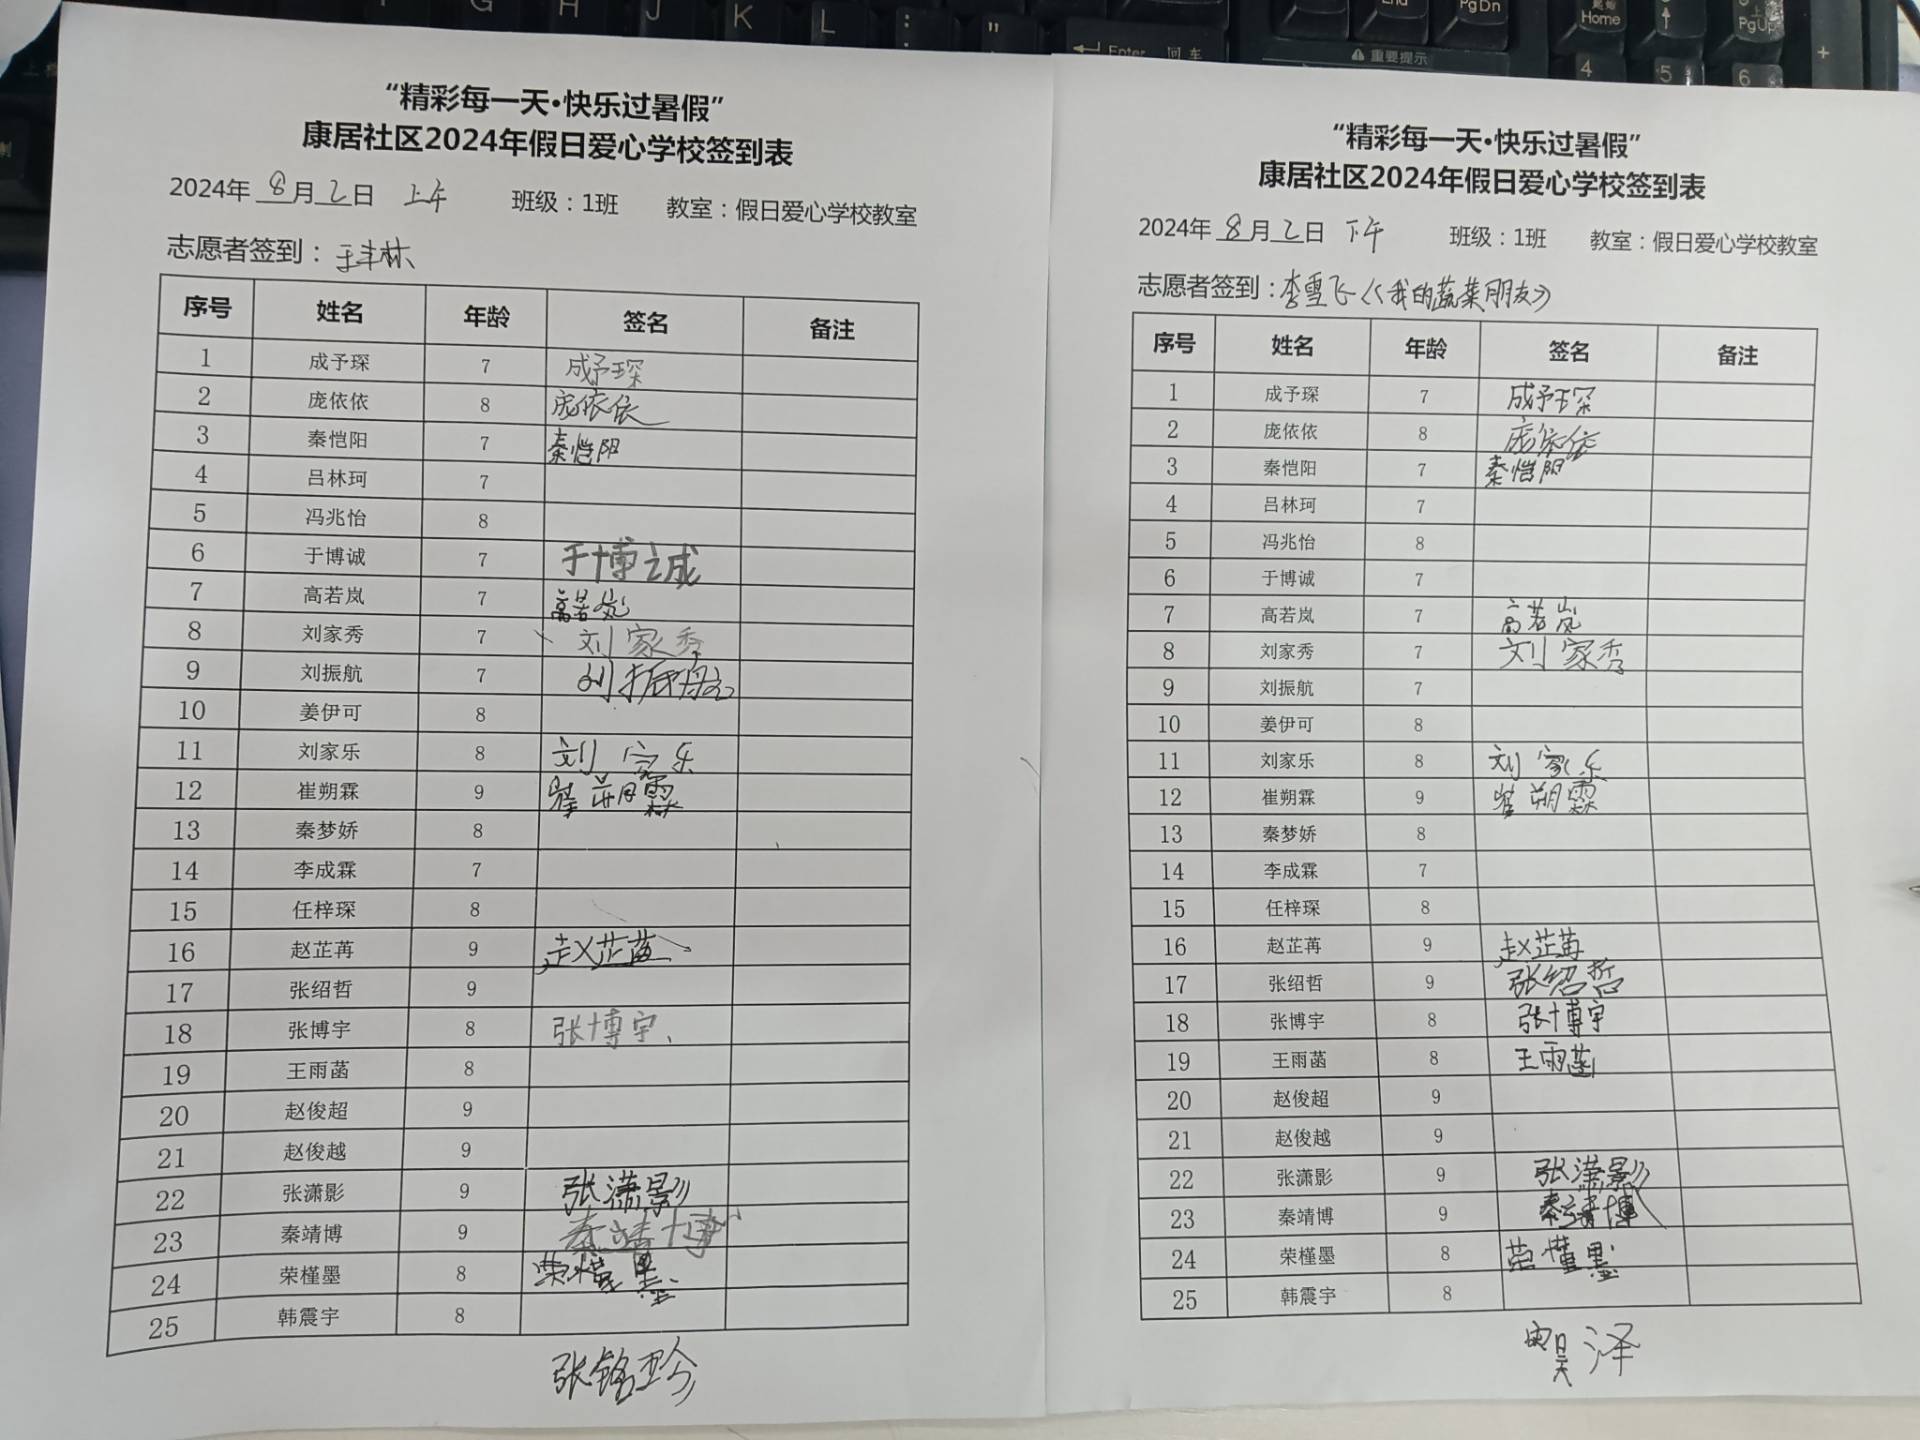 G H J K L : ; "
End PgDn Home PgUp
Enter 回车
重要提示
4 5 6 +
“精彩每一天•快乐过暑假”
康居社区2024年假日爱心学校签到表
2024年 8 月 2 日 上午 班级：1班 教室：假日爱心学校教室
志愿者签到：于丰林
序号 姓名 年龄 签名 备注
1 成予琛 7 成予琛
2 庞依依 8 庞依依
3 秦恺阳 7 秦恺阳
4 吕林珂 7
5 冯兆怡 8
6 于博诚 7 于博诚
7 高若岚 7 高若岚
8 刘家秀 7 刘家秀
9 刘振航 7 刘振航
10 姜伊可 8
11 刘家乐 8 刘家乐
12 崔朔霖 9 崔朔霖
13 秦梦娇 8
14 李成霖 7
15 任梓琛 8
16 赵芷苒 9 赵芷苒
17 张绍哲 9
18 张博宇 8 张博宇
19 王雨菡 8
20 赵俊超 9
21 赵俊越 9
22 张潇影 9 张潇影
23 秦靖博 9 秦靖博
24 荣槿墨 8 荣槿墨
25 韩震宇 8
张铭珍
“精彩每一天•快乐过暑假”
康居社区2024年假日爱心学校签到表
2024年 8 月 2 日 下午 班级：1班 教室：假日爱心学校教室
志愿者签到：李雪飞《我的蔬菜朋友》
序号 姓名 年龄 签名 备注
1 成予琛 7 成予琛
2 庞依依 8 庞依依
3 秦恺阳 7 秦恺阳
4 吕林珂 7
5 冯兆怡 8
6 于博诚 7
7 高若岚 7 高若岚
8 刘家秀 7 刘家秀
9 刘振航 7
10 姜伊可 8
11 刘家乐 8 刘家乐
12 崔朔霖 9 崔朔霖
13 秦梦娇 8
14 李成霖 7
15 任梓琛 8
16 赵芷苒 9 赵芷苒
17 张绍哲 9 张绍哲
18 张博宇 8 张博宇
19 王雨菡 8 王雨菡
20 赵俊超 9
21 赵俊越 9
22 张潇影 9 张潇影
23 秦靖博 9 秦靖博
24 荣槿墨 8 荣槿墨
25 韩震宇 8
昊泽